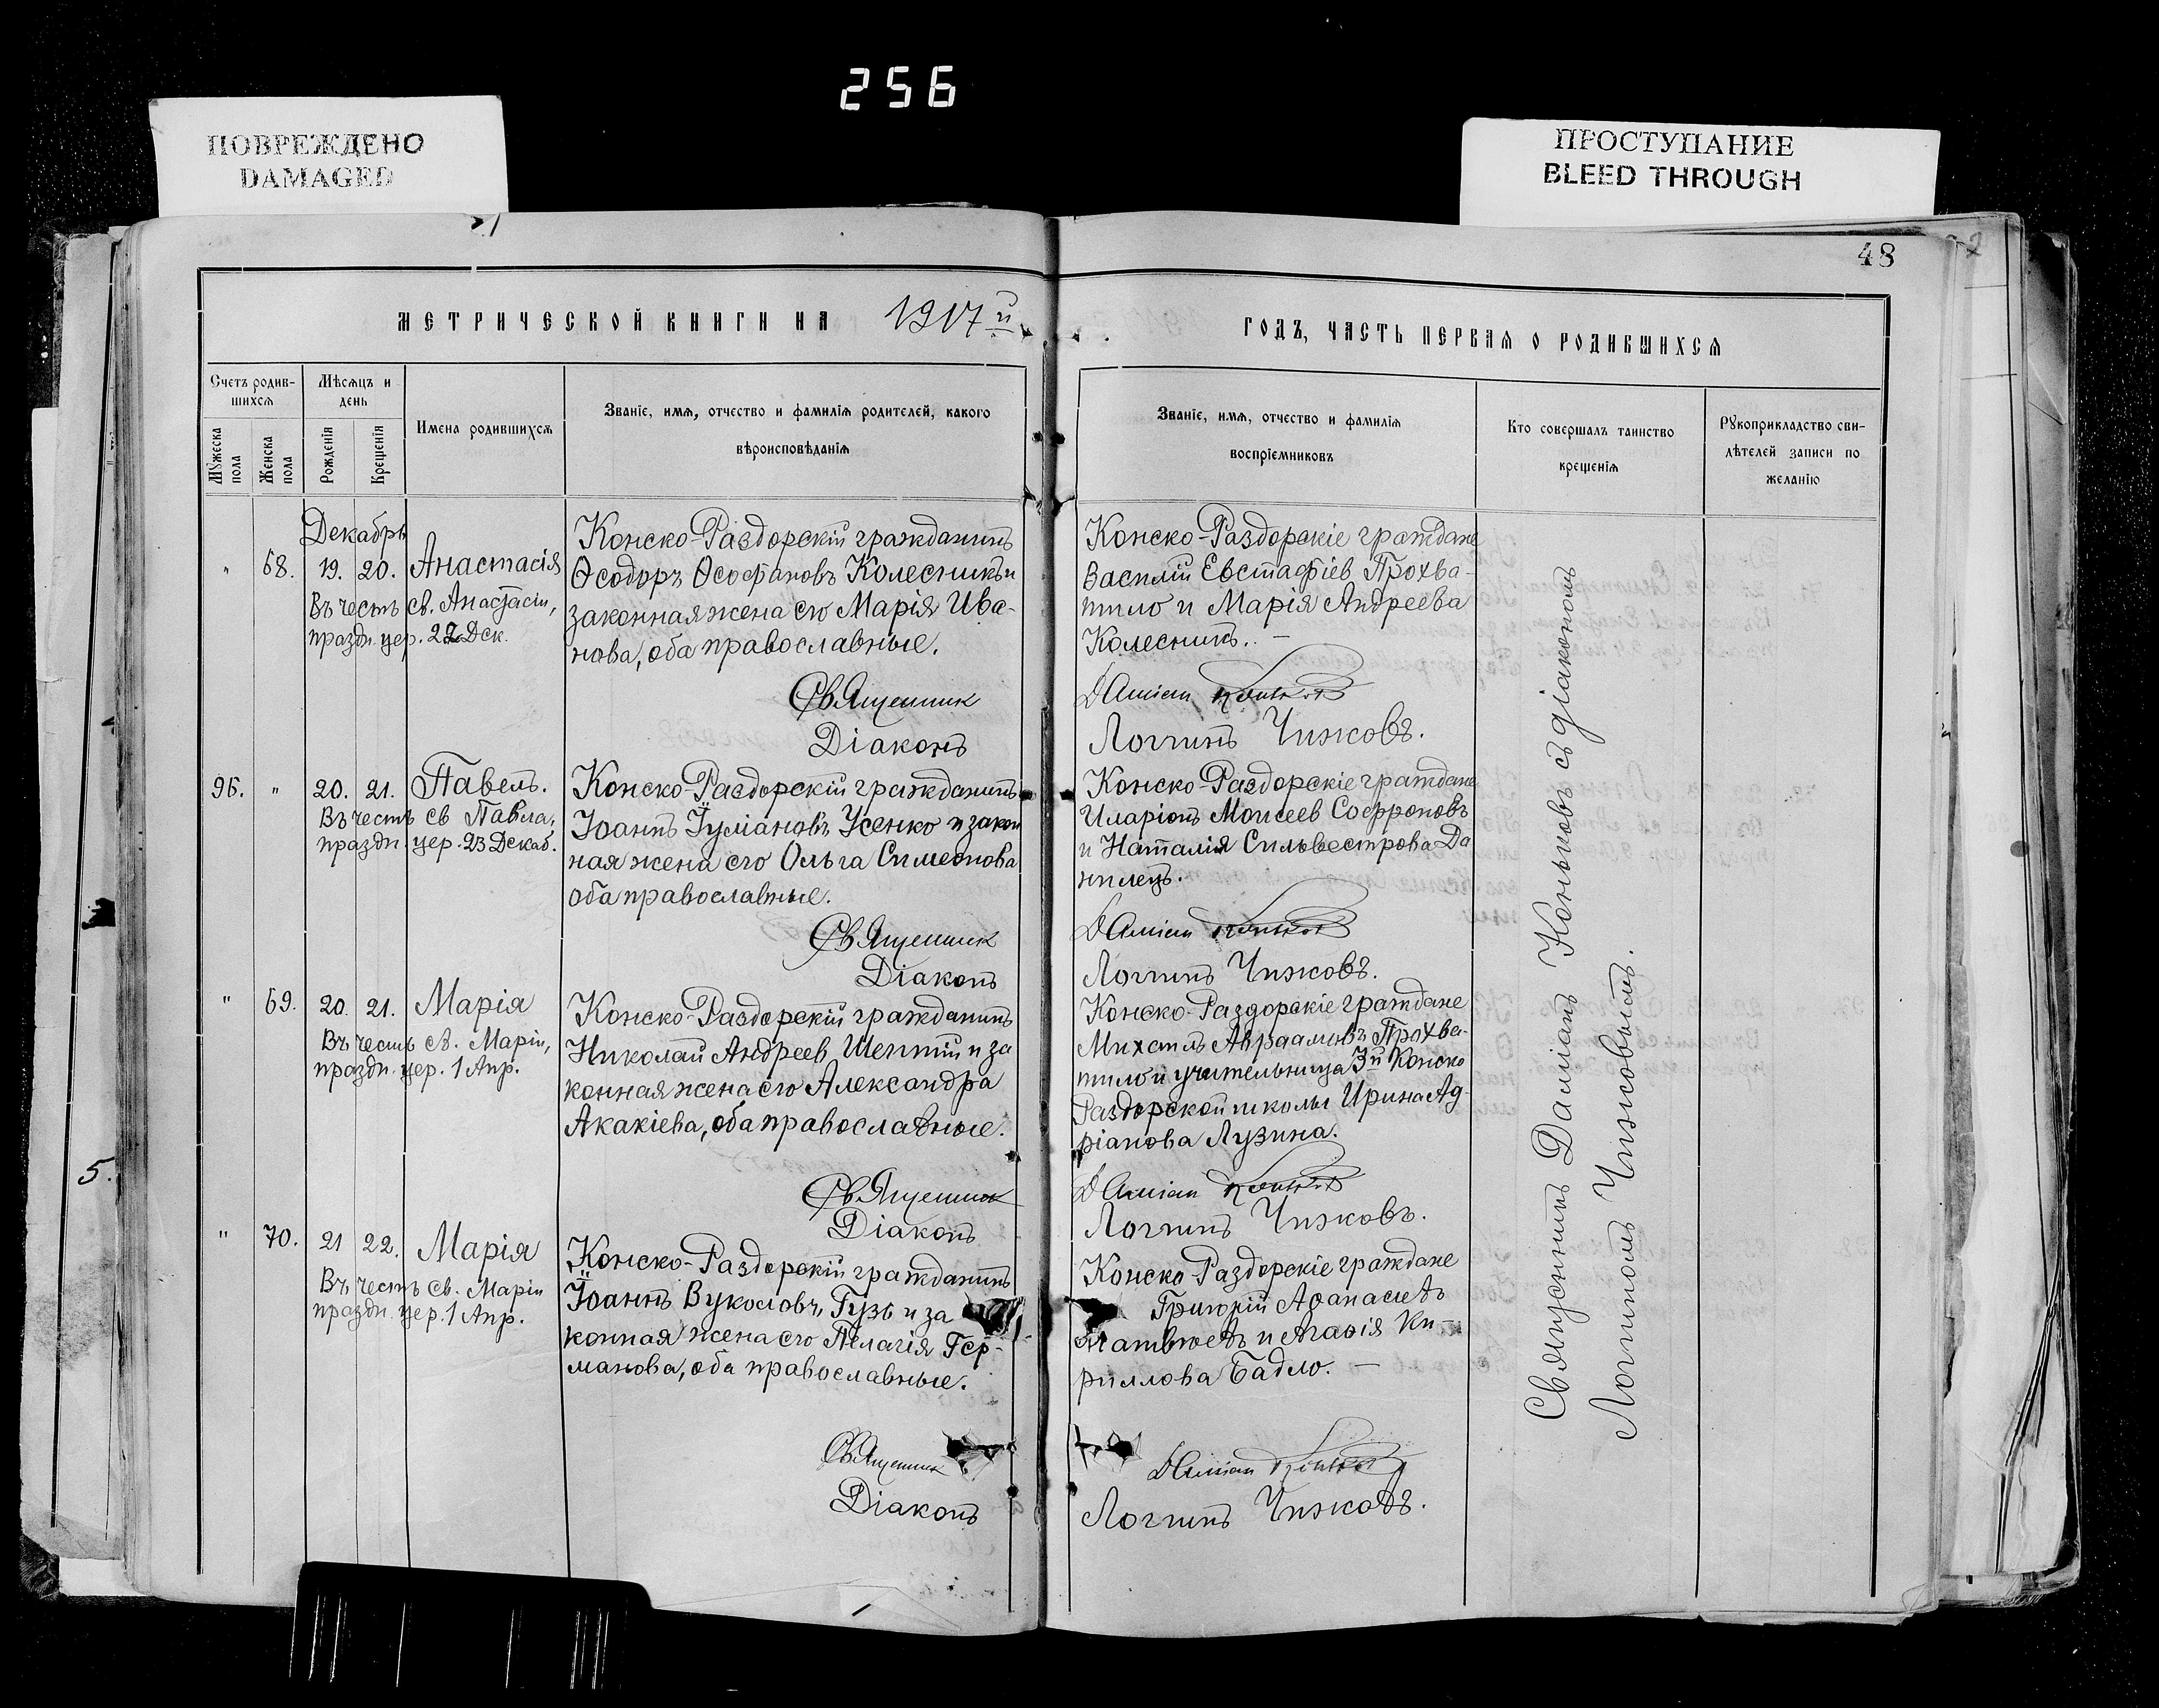 256
ПОВРЕЖДЕНО
DAMAGED
ПРОСТУПАНИЕ
BLEED THROUGH
48
МЕТРИЧЕСКОЙ КНИГИ НА 1917й
ГОДЪ, ЧАСТЬ ПЕРВАЯ О РОДИВШИХСЯ
Счетъ родив-
шихся
Мужеска
пола
Женска
пола
Мѣсяцъ и
день
Рожденія
Крещенія
Имена родившихся
Званіе, имя, отчество и фамилія родителей, какого
вѣроисповѣданія
Званіе, имя, отчество и фамилія
воспріемниковъ
Кто совершалъ таинство
крещенія
Рукоприкладство сви-
дѣтелей записи по
желанію
Декабрь
" 68. 19. 20. Анастасія
Въ честь св. Анастасіи,
праздн. цер. 22 Дек.
Конско-Раздорскій гражданинъ
Ѳеодоръ Ѳеофановъ Колесникъ и
законная жена его Марія Ива-
нова, оба православные.
Священник
Діаконъ
Конско-Раздорскіе граждане
Василій Евстафіев Прохва-
тило и Марія Андреева
Колесникъ. –
Даміан Коньков
Логгинъ Чижовъ.
96. " 20. 21. Павелъ.
Въ честь св Павла,
праздн. цер. 23 Декаб.
Конско-Раздорскій гражданинъ
Іоаннъ Іуліановъ Усенко и закон
ная жена его Ольга Симеонова
оба православные.
Священник
Діаконъ
Конско-Раздорскіе граждане
Иларіонъ Моисеев Софроновъ
и Наталія Сильвестрова Да
нилецъ.
Даміан Коньков
Логгинъ Чижовъ.
" 69. 20. 21. Марія
Въ честь св. Маріи,
праздн. цер. 1 Апр.
Конско-Раздорскій гражданинъ
Николай Андреев Шептій и за
конная жена его Александра
Акакіева, оба православные.
Священник
Діаконъ
Конско-Раздорскіе граждане
Михаилъ Авраамовъ Прохва-
тило и учительница 3й Конско
Раздорской школы Ирина Ад-
ріанова Лузина.
Даміан Коньков
Логгинъ Чижовъ.
" 70. 21 22. Марія
Въ честь св. Маріи
праздн. цер. 1 Апр.
Конско-Раздорскій гражданинъ
Іоаннъ Вуколовъ Гузь и за
конная жена его Пелагія Гер-
манова, оба православные.
Священник
Діаконъ
Конско Раздорскіе граждане
Григорій Аѳанасіевъ
Матвіевъ и Агаѳія Ки-
риллова Бадло. –
Даміан Коньков
Логгинъ Чижовъ.
Священникъ Даміанъ Коньковъ съ діакономъ
Логгиномъ Чижовымъ.
5.